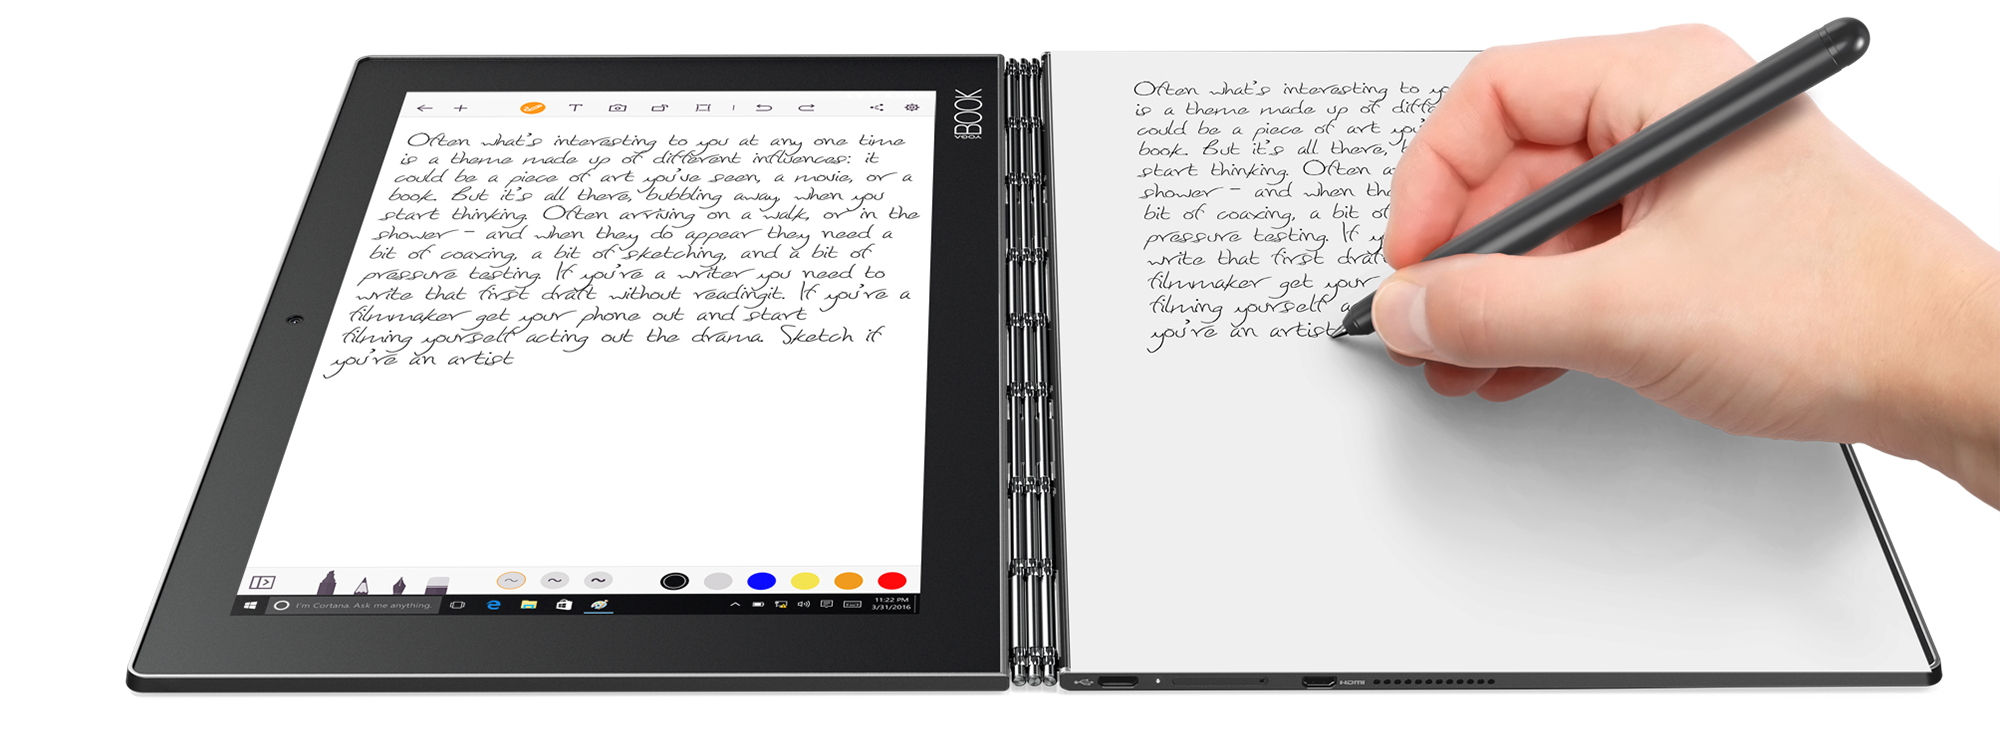 Often what's interesting to you at any one time
is a theme made up of different influences: it
could be a piece of art you've seen, a movie, or a
book. But it's all there, bubbling away, when you
start thinking. Often arriving on a walk, or in the
shower - and when they do appear they need a
bit of coaxing, a bit of sketching, and a bit of
pressure testing. If you're a writer you need to
write that first draft without readingit. If you're a
filmmaker get your phone out and start
filming yourself acting out the drama. Sketch if
you're an artist
I'm Cortana. Ask me anything.
11:22 PM
3/31/2016
YOGA BOOK
Often what's interesting to yo
is a theme made up of diffe
could be a piece of art you'
book. But it's all there, b
start thinking. Often a
shower - and when the
bit of coaxing, a bit of
pressure testing. If y
write that first draft
filmmaker get your
filming yourself a
you're an artist
HDMI